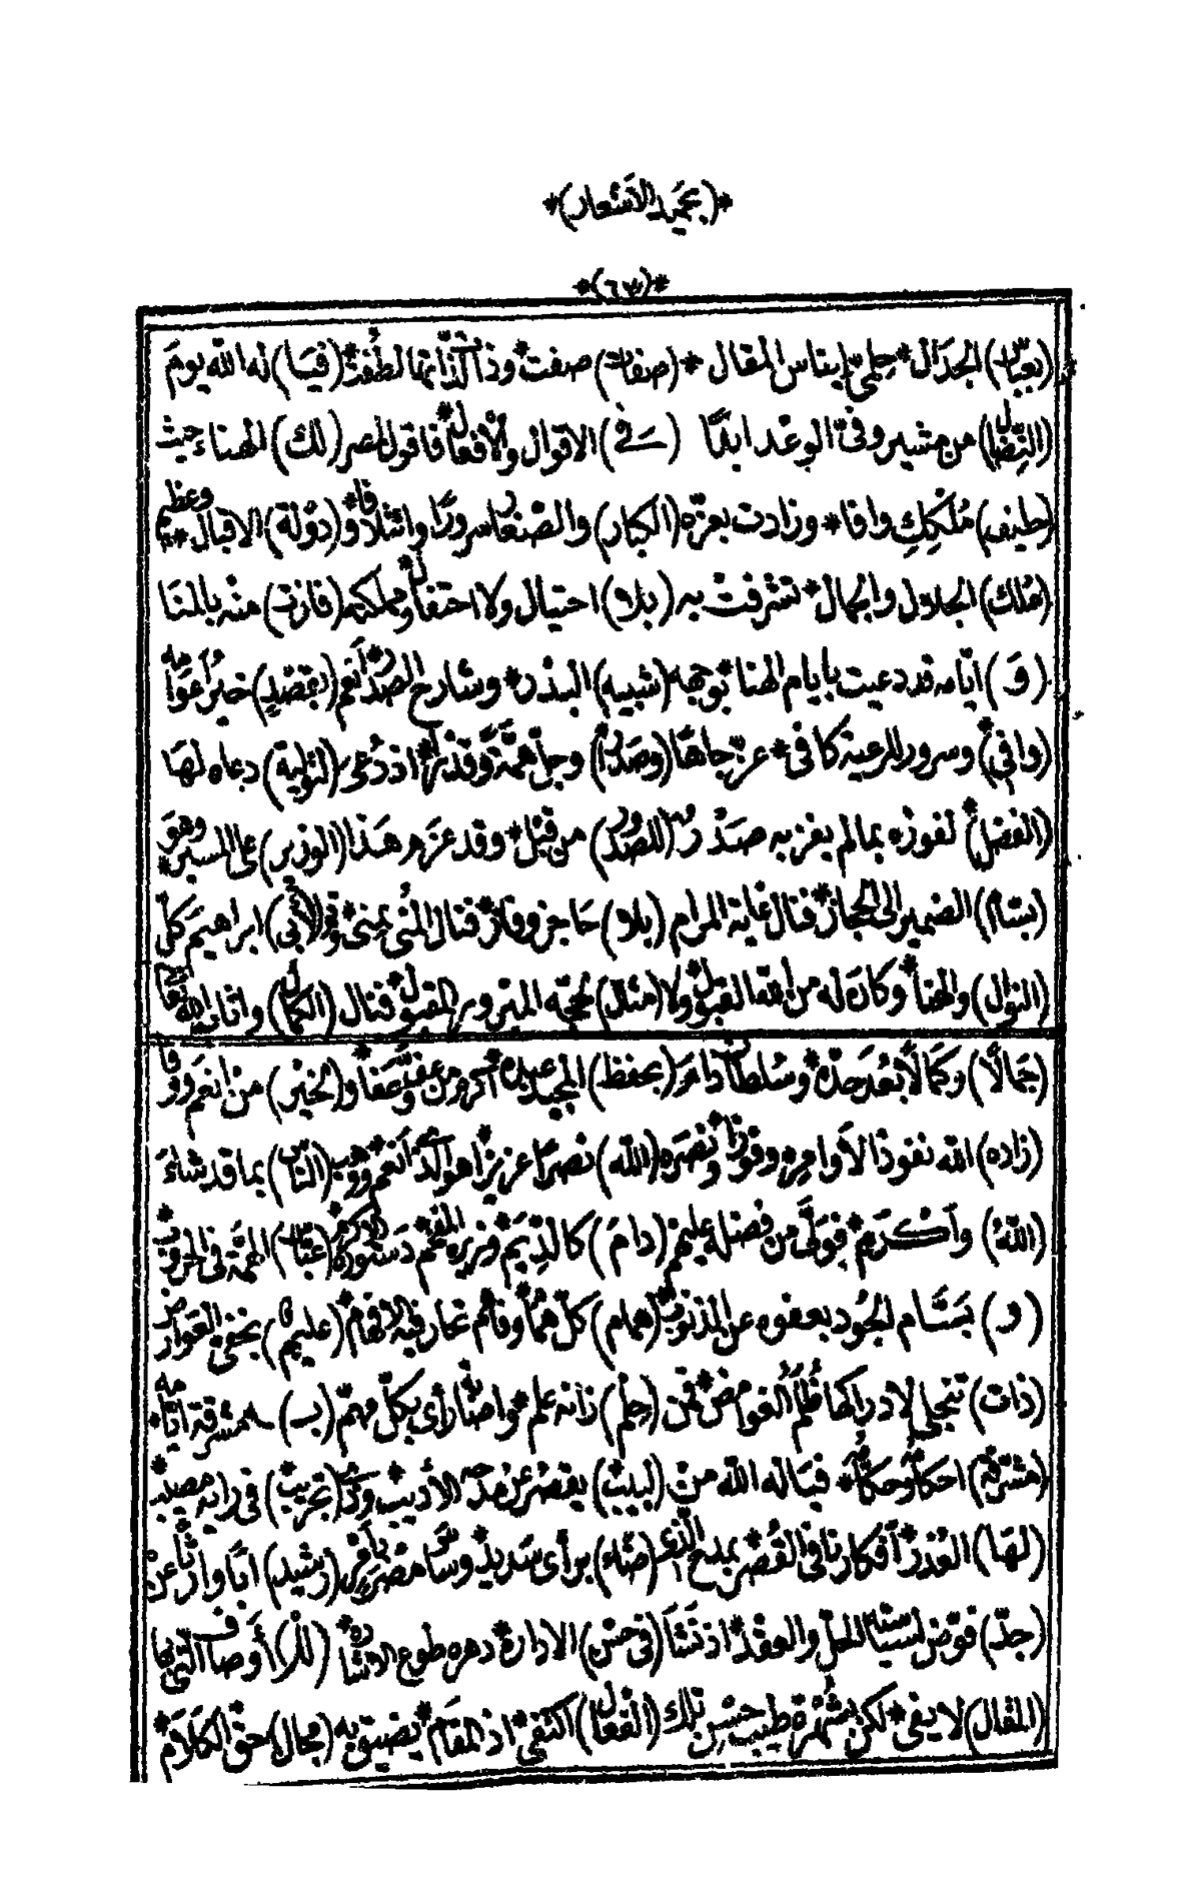 *(بحميد الاشعار)*
*(٦٣)*
(بعيد) الجدال * حلمي يقاس المقال * (صفات) صفت * وذا لذاتها لطفت * (فيا) له الله يوم
(النضال) من مشير وفيّ الوعد ابدًا (في) الاقوال والافعال * فاقول لمصر (لك) الهناء حيث
(حليف) مُلككِ وافا * وزادت بعزه (الكبار) والصغار سرورًا وائتلافا * و(دولة) الاقبال * وعظم
(مُلك) الجلال والجمال * تشرفت به (بلا) احتيال ولا احتفال * ومملكته (فازت) منه بالمنا
(وَ) ايامه قد دعيت بايام الهنا * بوجه (شبيه) البدر * وشارح الصدر * أنعم (بفضل) خير أعوامه
(وافي) * وسرور للرعية كافي * عزّ جاهًا (وصدرا) وجلّ همّة وقدرا * اذ دُعي (لتولية) دعاه لها
(الفضل) * لفوزه بمالم يفز به صَدْرُ (الصدور) من قبل * وقد عزم هذا (الوزير) على المسير * وهو
(بسّام) الضمير الى الحجاز * فنال غاية المرام (بلا) حاجز وفاز * فنال المنى بمنى * و(لابي) ابراهيم كلّ
(النوال) والهنا * وكان له من الله القبول * ولا (مثال) لحجه المبرور المقبول * فنال (الكمال) واثابه الله تعالى
(جمالًا) وكمالًا بعد حدّه * وسلطاننا دام (بحفظ) المجيد عبده * اكرم من عفّ وعفا * و(لخير) من انعم ووفا
(زاده) الله نفوذا لأوامره وفوزا * ونصره (الله) نصرا عزيزا * هو الذي أنعم ووهب (الناس) بما قد شاءَ
(اللهُ) وأكرم * فولّى من فضله عليهم (دام) كالذيم * وزيره المفخم * دستوره الاكرم (عباس) الهمّة في الحروب *
(و) بسّام الجود بعفوه عن المذنوب * (همام) كلّ هُمام * وفاهم تحار فيه الافهام * (عليم) بخفي الغوامض
(ذات) تنجلي لادراكها ظلم الغوامض * فمن (حلم) زانه علم * واضاء رأي بكلّ مهمّ (بـ) ـه مشرقة ايّامه *
(مشرقة) احكامُ حكّامه * فياله الله من (لبيب) يقصر عن مدحه الأديب * وذي (تجريب) في رأيه مصيب *
(لها) العذر أفكارنا في القُصر بمدح الذي (ضاء) برأي سَديد * وساس مصر بأمر (رشيد) ابًا وارثا عن
(جدّ) فوّض لسياسته الحل والعقد * اذ نَشَأَ (في حسن) الادارة * دهره طوع اشارته * (للر) أوصاف التي بها
(المقال) لا يفي * لكن بشهرة طيب حُسن تلك (الفعال) اكتفي * اذ المقام * يضيق به (مجال) حق الكلام *